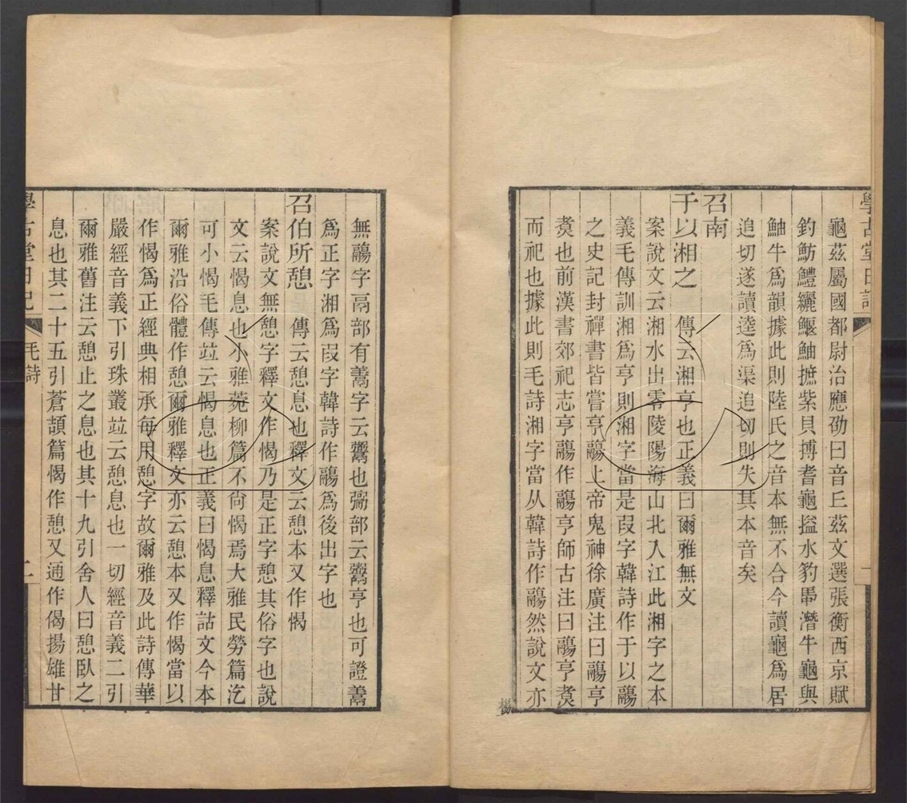 學古堂日記
龜茲屬國都尉治應劭曰音丘茲文選張衡西京賦
釣魴鱧纚鰋鮋摭紫貝搏耆龜搤水豹馽潛牛龜與
鮋牛爲韻據此則陸氏之音本無不合今讀龜爲居
追切遂讀逵爲渠追切則失其本音矣
召南
于以湘之　傳云湘亨也正義曰爾雅無文
案說文云湘水出零陵陽海山北入江此湘字之本
義毛傳訓湘爲亨則湘字當是叚字韓詩作于以鬺
之史記封禪書皆嘗亨鬺上帝鬼神徐廣注曰鬺亨
煑也前漢書郊祀志亨鬺作鬺亨師古注曰鬺亨煑
而祀也據此則毛詩湘字當从韓詩作鬺然說文亦
無鬺字鬲部有䰞字云䰞也䰜部云䰞亨也可證䰞
爲正字湘爲叚字韓詩作鬺爲後出字也
召伯所憩　傳云憩息也釋文云憩本又作愒
案說文無憩字釋文作愒乃是正字憩其俗字也說
文云愒息也小雅菀柳篇不尚愒焉大雅民勞篇汔
可小愒毛傳竝云愒息也正義曰愒息釋詁文今本
爾雅沿俗體作憩爾雅釋文亦云憩本又作愒當以
作愒爲正經典相承每用憩字故爾雅及此詩傳華
嚴經音義下引珠叢竝云憩息也一切經音義二引
爾雅舊注云憩止之息也其十九引舍人曰憩臥之
息也其二十五引蒼頡篇愒作憩又通作偈揚雄甘
學古堂日記
毛詩
二